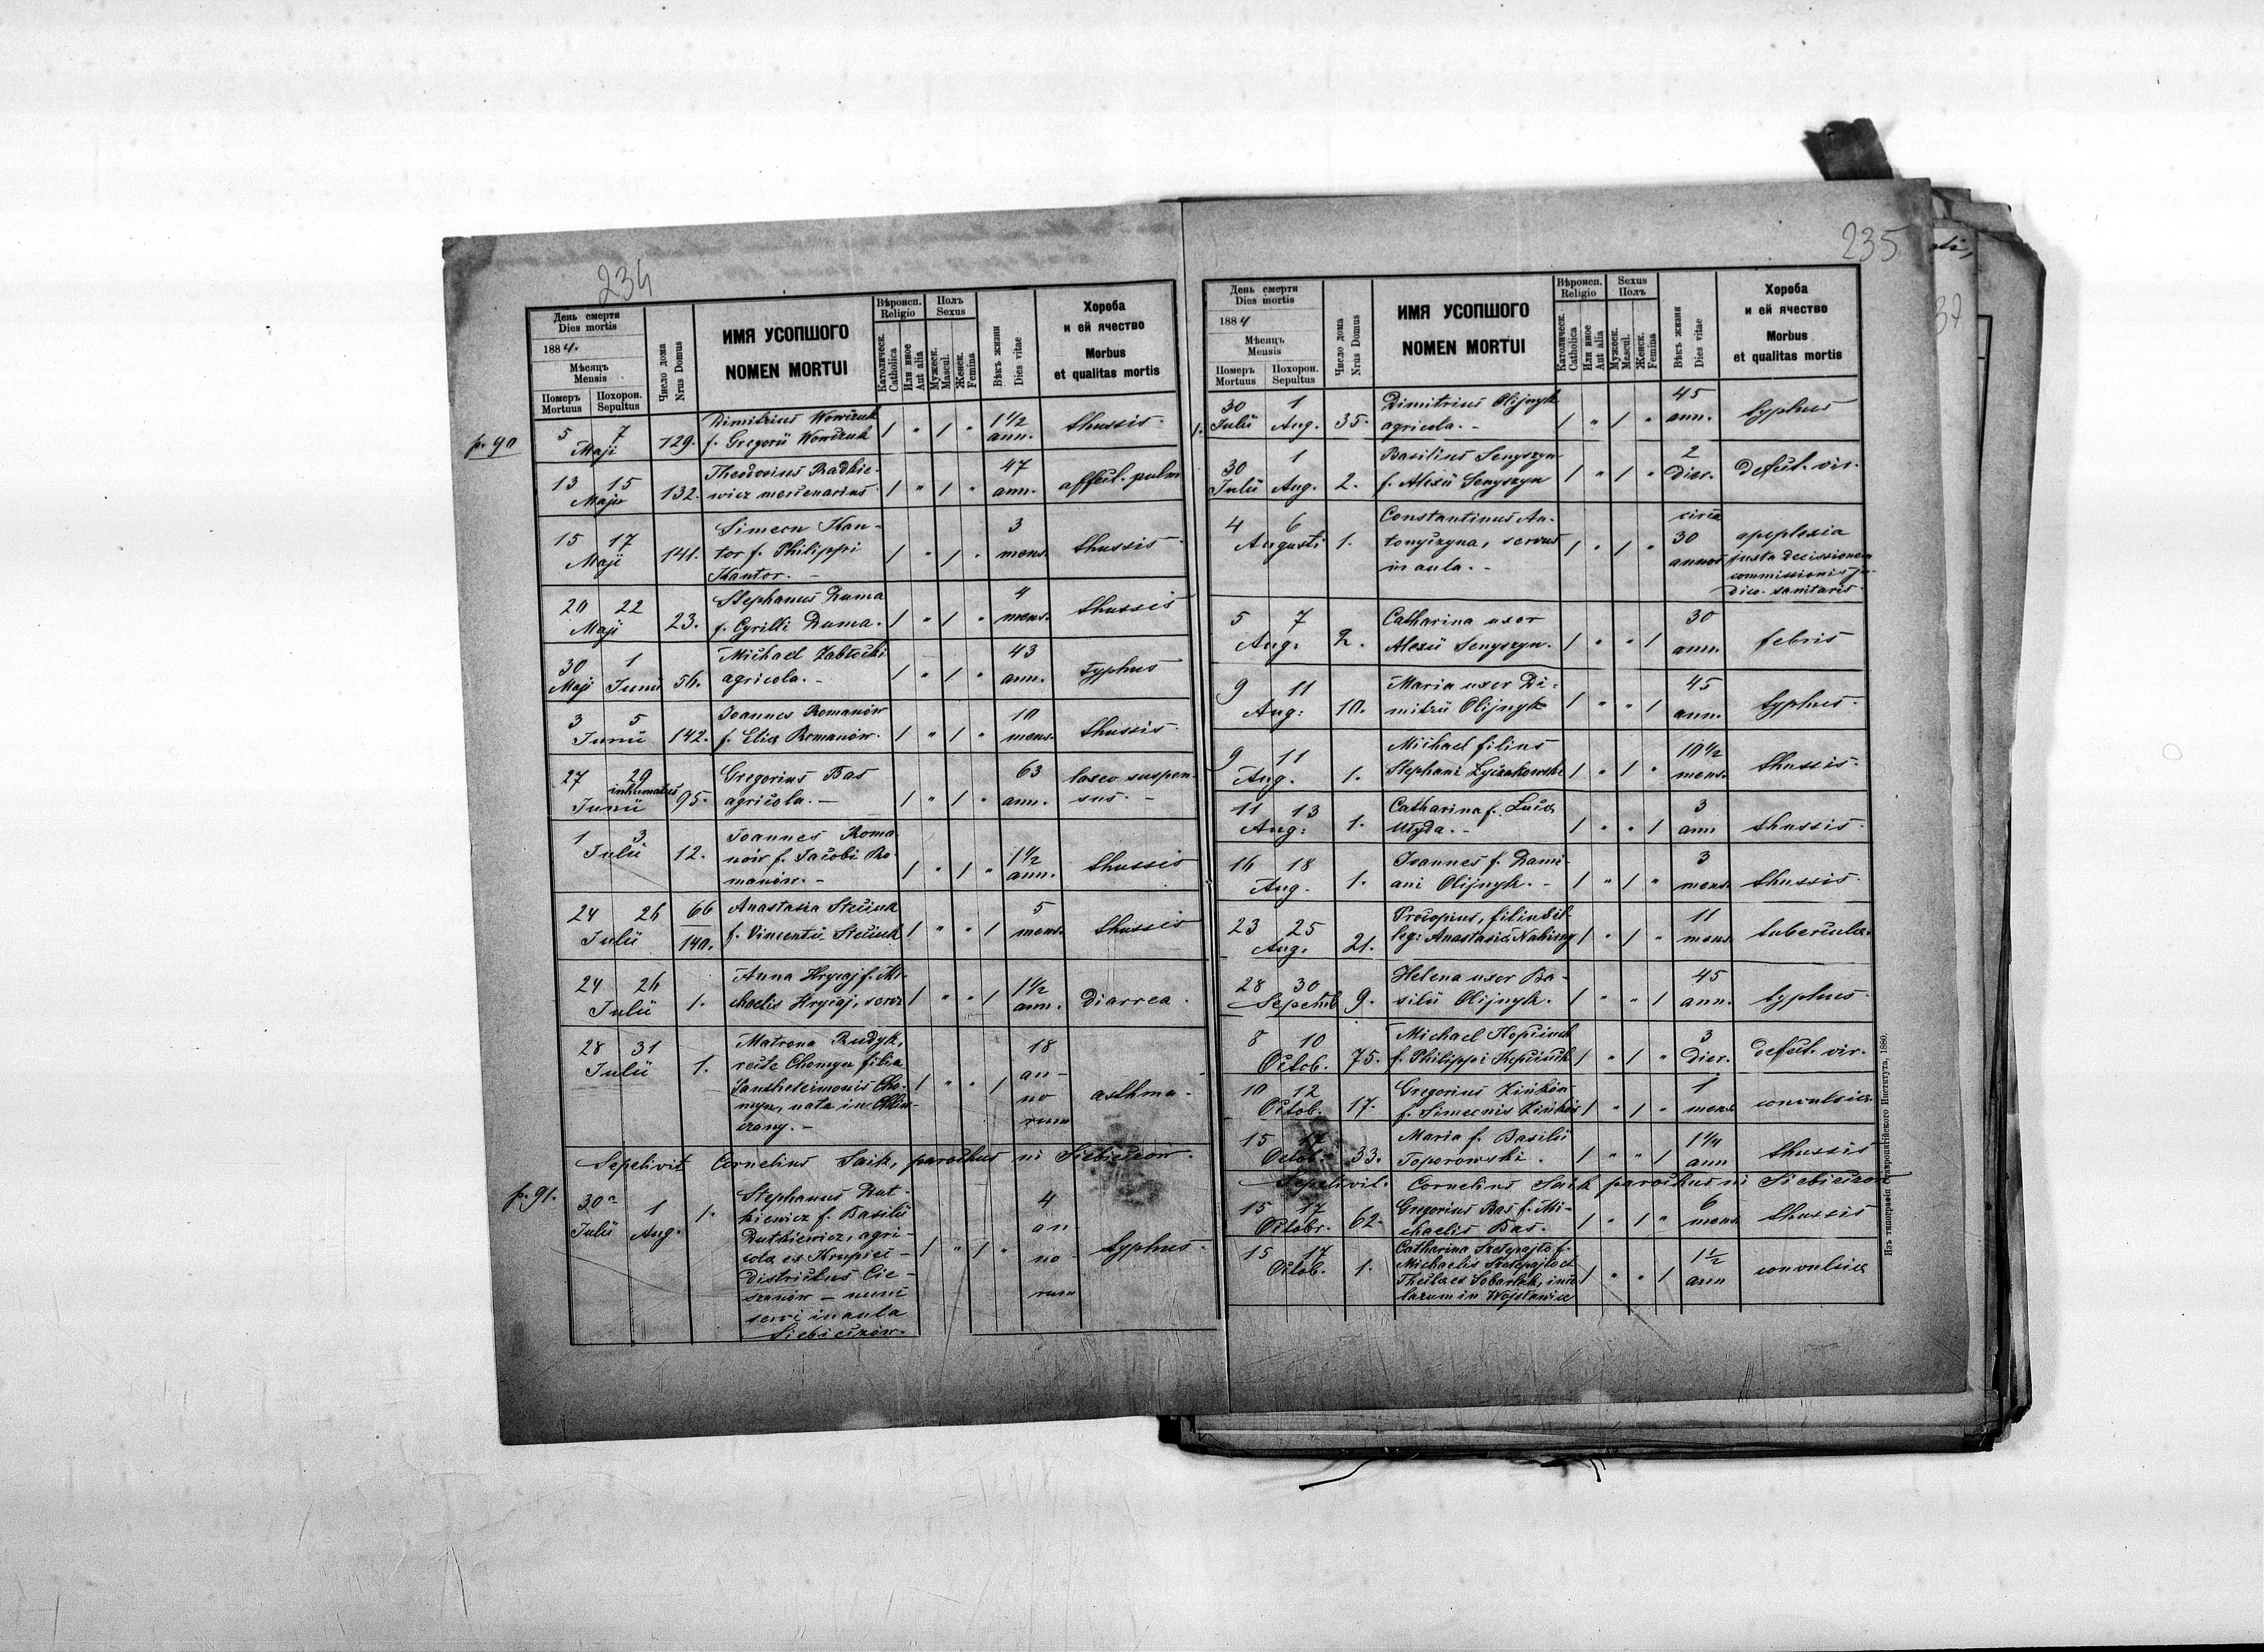 234
День смерти
Dies mortis
1884.
Мѣсяць
Mensis
Померъ
Mortuus
Похорон.
Sepultus
Число дома
Nrus Domus
ИМЯ УСОПШОГО
NOMEN MORTUI
Вѣроисп.
Religio
Католическ.
Catholica
Или иное
Aut alia
Полъ
Sexus
Мужеск.
Mascul.
Женск.
Femina
Вѣкъ жизни
Dies vitae
Хороба
и ей ячество
Morbus
et qualitas mortis
p. 90
5 7 Maji 129. Dimitrius Wowczuk f. Gregorii Wowczuk 1 " 1 " 1 1/2 ann. thussis
13 15 Maji 132. Theodosius Radkiewicz mercenarius 1 " 1 " 47 ann. affect. pulm
15 17 Maji 141. Simeon Kantor f. Philippi Kantor. 1 " 1 " 3 mens. thussis
20 22 Maji 23. Stephanus Duma f. Cyrilli Duma. 1 " 1 " 4 mens. thussis
30 Maji 1 Junii 56. Michael Zabłocki agricola. 1 " 1 " 43 ann. typhus
3 5 Junii 142. Joannes Romanów f. Eliæ Romanów. 1 " 1 " 10 mens. thussis
27 29 inhumatus Junii 95. Gregorius Bas agricola. 1 " 1 " 63 ann. laseo suspensus.
1 3 Julii 12. Joannes Romanów f. Jacobi Romanów. 1 " 1 " 1 1/2 ann. thussis
24 26 Julii 66 140. Anastasia Steciuk f. Vincentii Steciuk 1 " " 1 5 mens. thussis
24 26 Julii 1. Anna Hrycaj f. Michaelis Hrycaj, servi 1 " " 1 1 1/2 ann. diarrea.
28 31 Julii 1. Matrona Rudyk, recte Chomyn filia Pantheleimonis Chomyn, nata in 1 " " 1 18 annorum asthma
Sepelivit Cornelius Saik, parochus in Siebieczów.
p. 91.
30 Julii 1 Aug. 1. Stephanus Rutkiewicz f. Basilii Rutkiewicz, agricola ex Krupiec districtus Cieszanów – nunc servi in aula Siebieczów. 1 " 1 " 4 annorum typhus.
235
День смерти
Dies mortis
1884
Мѣсяць
Mensis
Померъ
Mortuus
Похорон.
Sepultus
Число дома
Nrus Domus
ИМЯ УСОПШОГО
NOMEN MORTUI
Вѣроисп.
Religio
Католическ.
Catholica
Или иное
Aut alia
Sexus
Полъ
Мужеск.
Mascul.
Женск.
Femina
Вѣкъ жизни
Dies vitae
Хороба
и ей ячество
Morbus
et qualitas mortis
30 Julii 1 Aug. 35. Dimitrius Olijnyk agricola. 1 " 1 " 45 ann. typhus
30 Julii 1 Aug. 2. Basilius Senyszyn f. Alexii Senyszyn 1 " 1 " 2 dier. defect. vir.
4 6 Augusti 1. Constantinus Antonyczyna, servus in aula. 1 " 1 " circa 30 annos apoplexia juxta decissionem commissionis judico-sanitaris
5 7 Aug. 2. Catharina uxor Alexii Senyszyn. 1 " " 1 30 ann. febris
9 11 Aug: 10. Maria uxor Dimitrii Olijnyk 1 " " 1 45 ann. typhus.
9 11 Aug. 1. Michael filius Stephani Łyczakowski 1 " 1 " 10 1/2 mens. thussis.
11 13 Aug: 1. Catharina f. Lucæ 1 " " 1 3 ann thussis.
16 18 Aug. 1. Joannes f. Damiani Olijnyk. 1 " 1 " 3 mens. thussis.
23 25 Aug. 21. Procopius, filius illeg: Anastasiæ 1 " 1 " 11 mens. tuberculæ.
28 30 Septemb 9. Helena uxor Basilii Olijnyk. 1 " " 1 45 ann. typhus.
8 10 Octob. 75. Michael Kopciuch f. Philippi Kopciuch 1 " 1 " 3 dier. defect. vir.
10 12 Octob. 17. Gregorius Zińków f. Simeonis Zińków 1 " 1 " 1 mens convulsiæ.
15 17 Octob. 33. Maria f. Basilii Toporowski. 1 " " 1 1 1/4 ann thussis
Sepelivit. Cornelius Saik parochus in Siebieczów
15 17 Octobr. 62. Gregorius Bas f. Michaelis Bas. 1 " 1 " 6 mens. thussis
15 17 Octob. 1. Catharina Szelepajto f. Michaelis Szelepajto et Theclæ ex Sobartek, incolarum in Wojsławice 1 " " 1 1 1/2 ann convulsiæ
Изъ типографіи Ставропигійского Института, 1880.